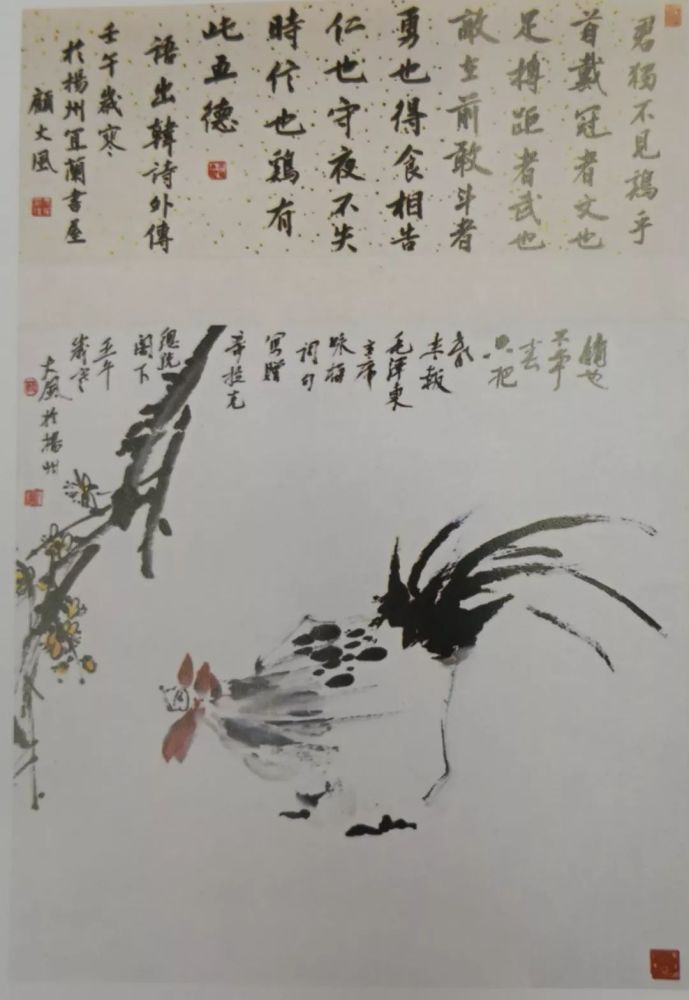 君獨不見鷄乎
首戴冠者文也
足搏距者武也
敵在前敢斗者
勇也得食相告
仁也守夜不失
時信也鷄有
此五德
語出韓詩外傳
壬午歲寒
於揚州宜蘭書屋
顧大風
俏也
不争
春
只把
春
来報
毛澤東
主席
咏梅
词句
寫贈
希拉克
總统
閣下
壬午
歲寒
大風於揚州